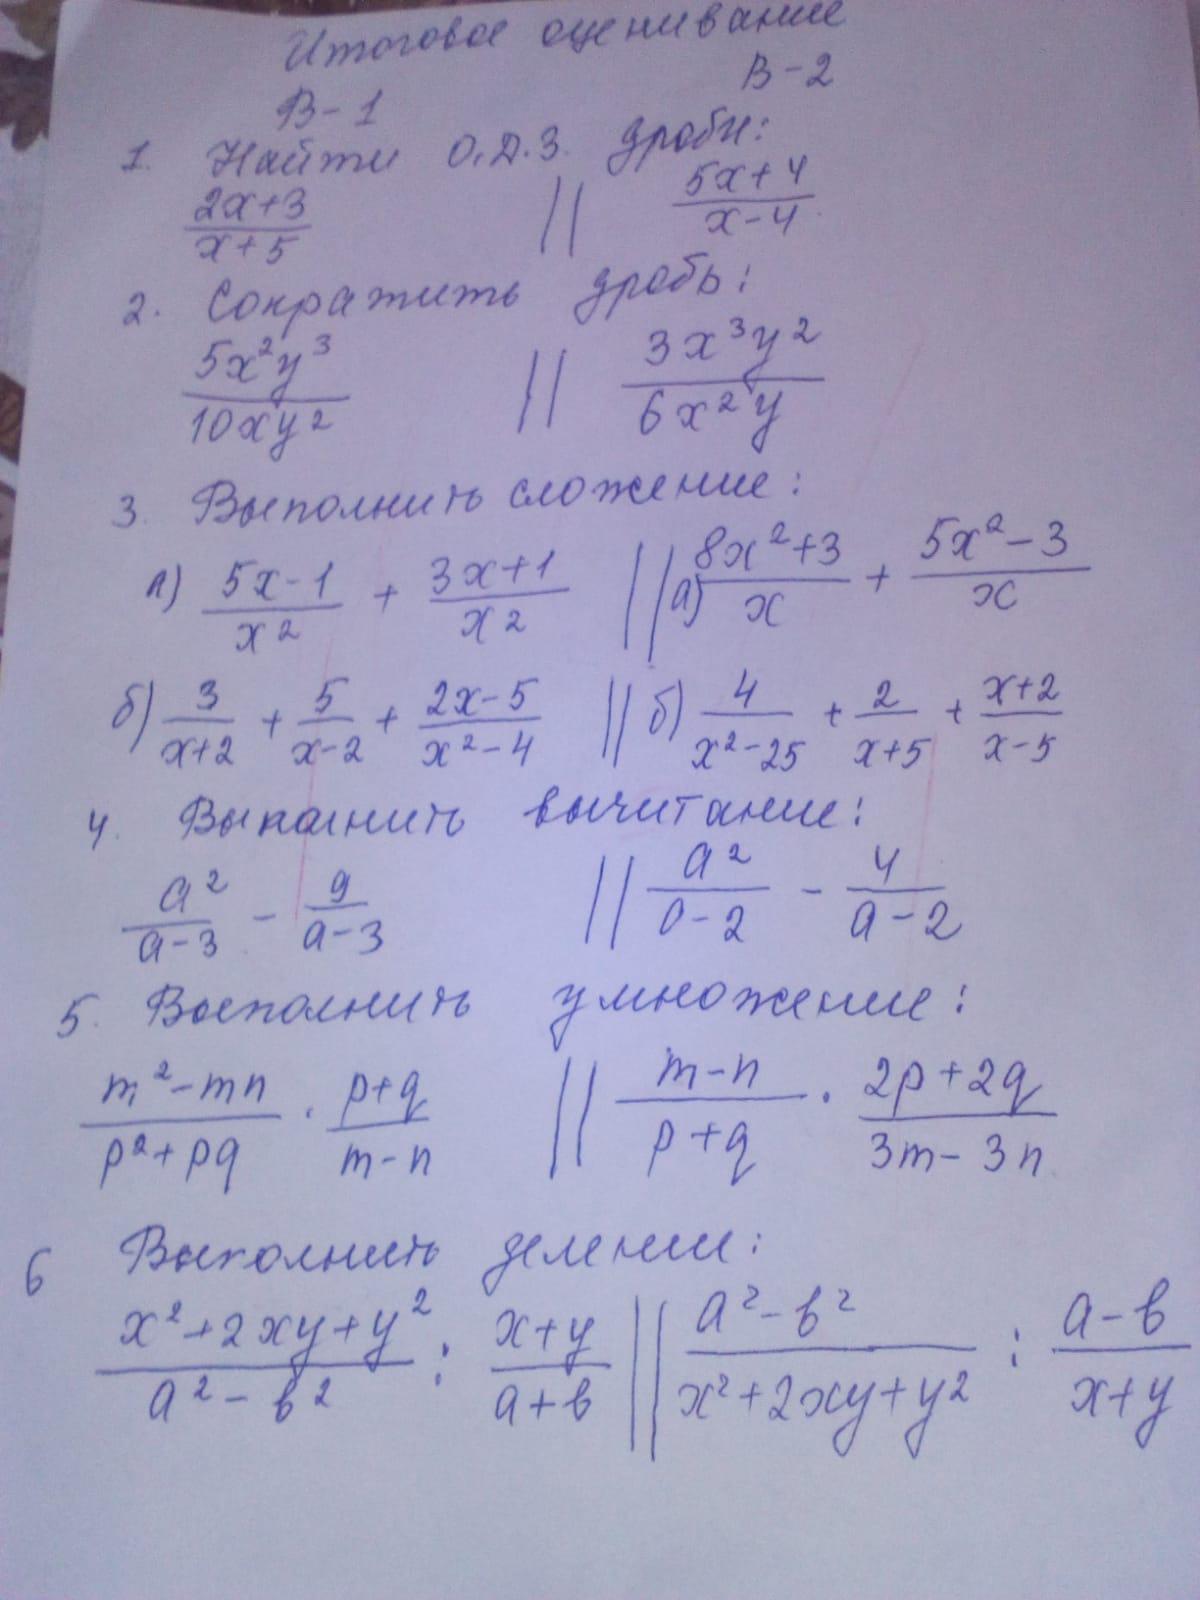 Итоговое оценивание
В-1 В-2
1. Найти О.Д.З. дроби:
(2x+3)/(x+5) || (5x+4)/(x-4)
2. Сократить дробь:
5x²y³/10xy² || 3x³y²/6x²y
3. Выполнить сложение:
а) (5x-1)/x² + (3x+1)/x² || а) (8x²+3)/x + (5x²-3)/x
б) 3/(x+2) + 5/(x-2) + (2x-5)/(x²-4) || б) 4/(x²-25) + 2/(x+5) + (x+2)/(x-5)
4. Выполнить вычитание:
a²/(a-3) - 9/(a-3) || a²/(a-2) - 4/(a-2)
5. Выполнить умножение:
(m²-mn)/(p²+pq) · (p+q)/(m-n) || (m-n)/(p+q) · (2p+2q)/(3m-3n)
6 Выполнить деление:
(x²+2xy+y²)/(a²-b²) : (x+y)/(a+b) || (a²-b²)/(x²+2xy+y²) : (a-b)/(x+y)